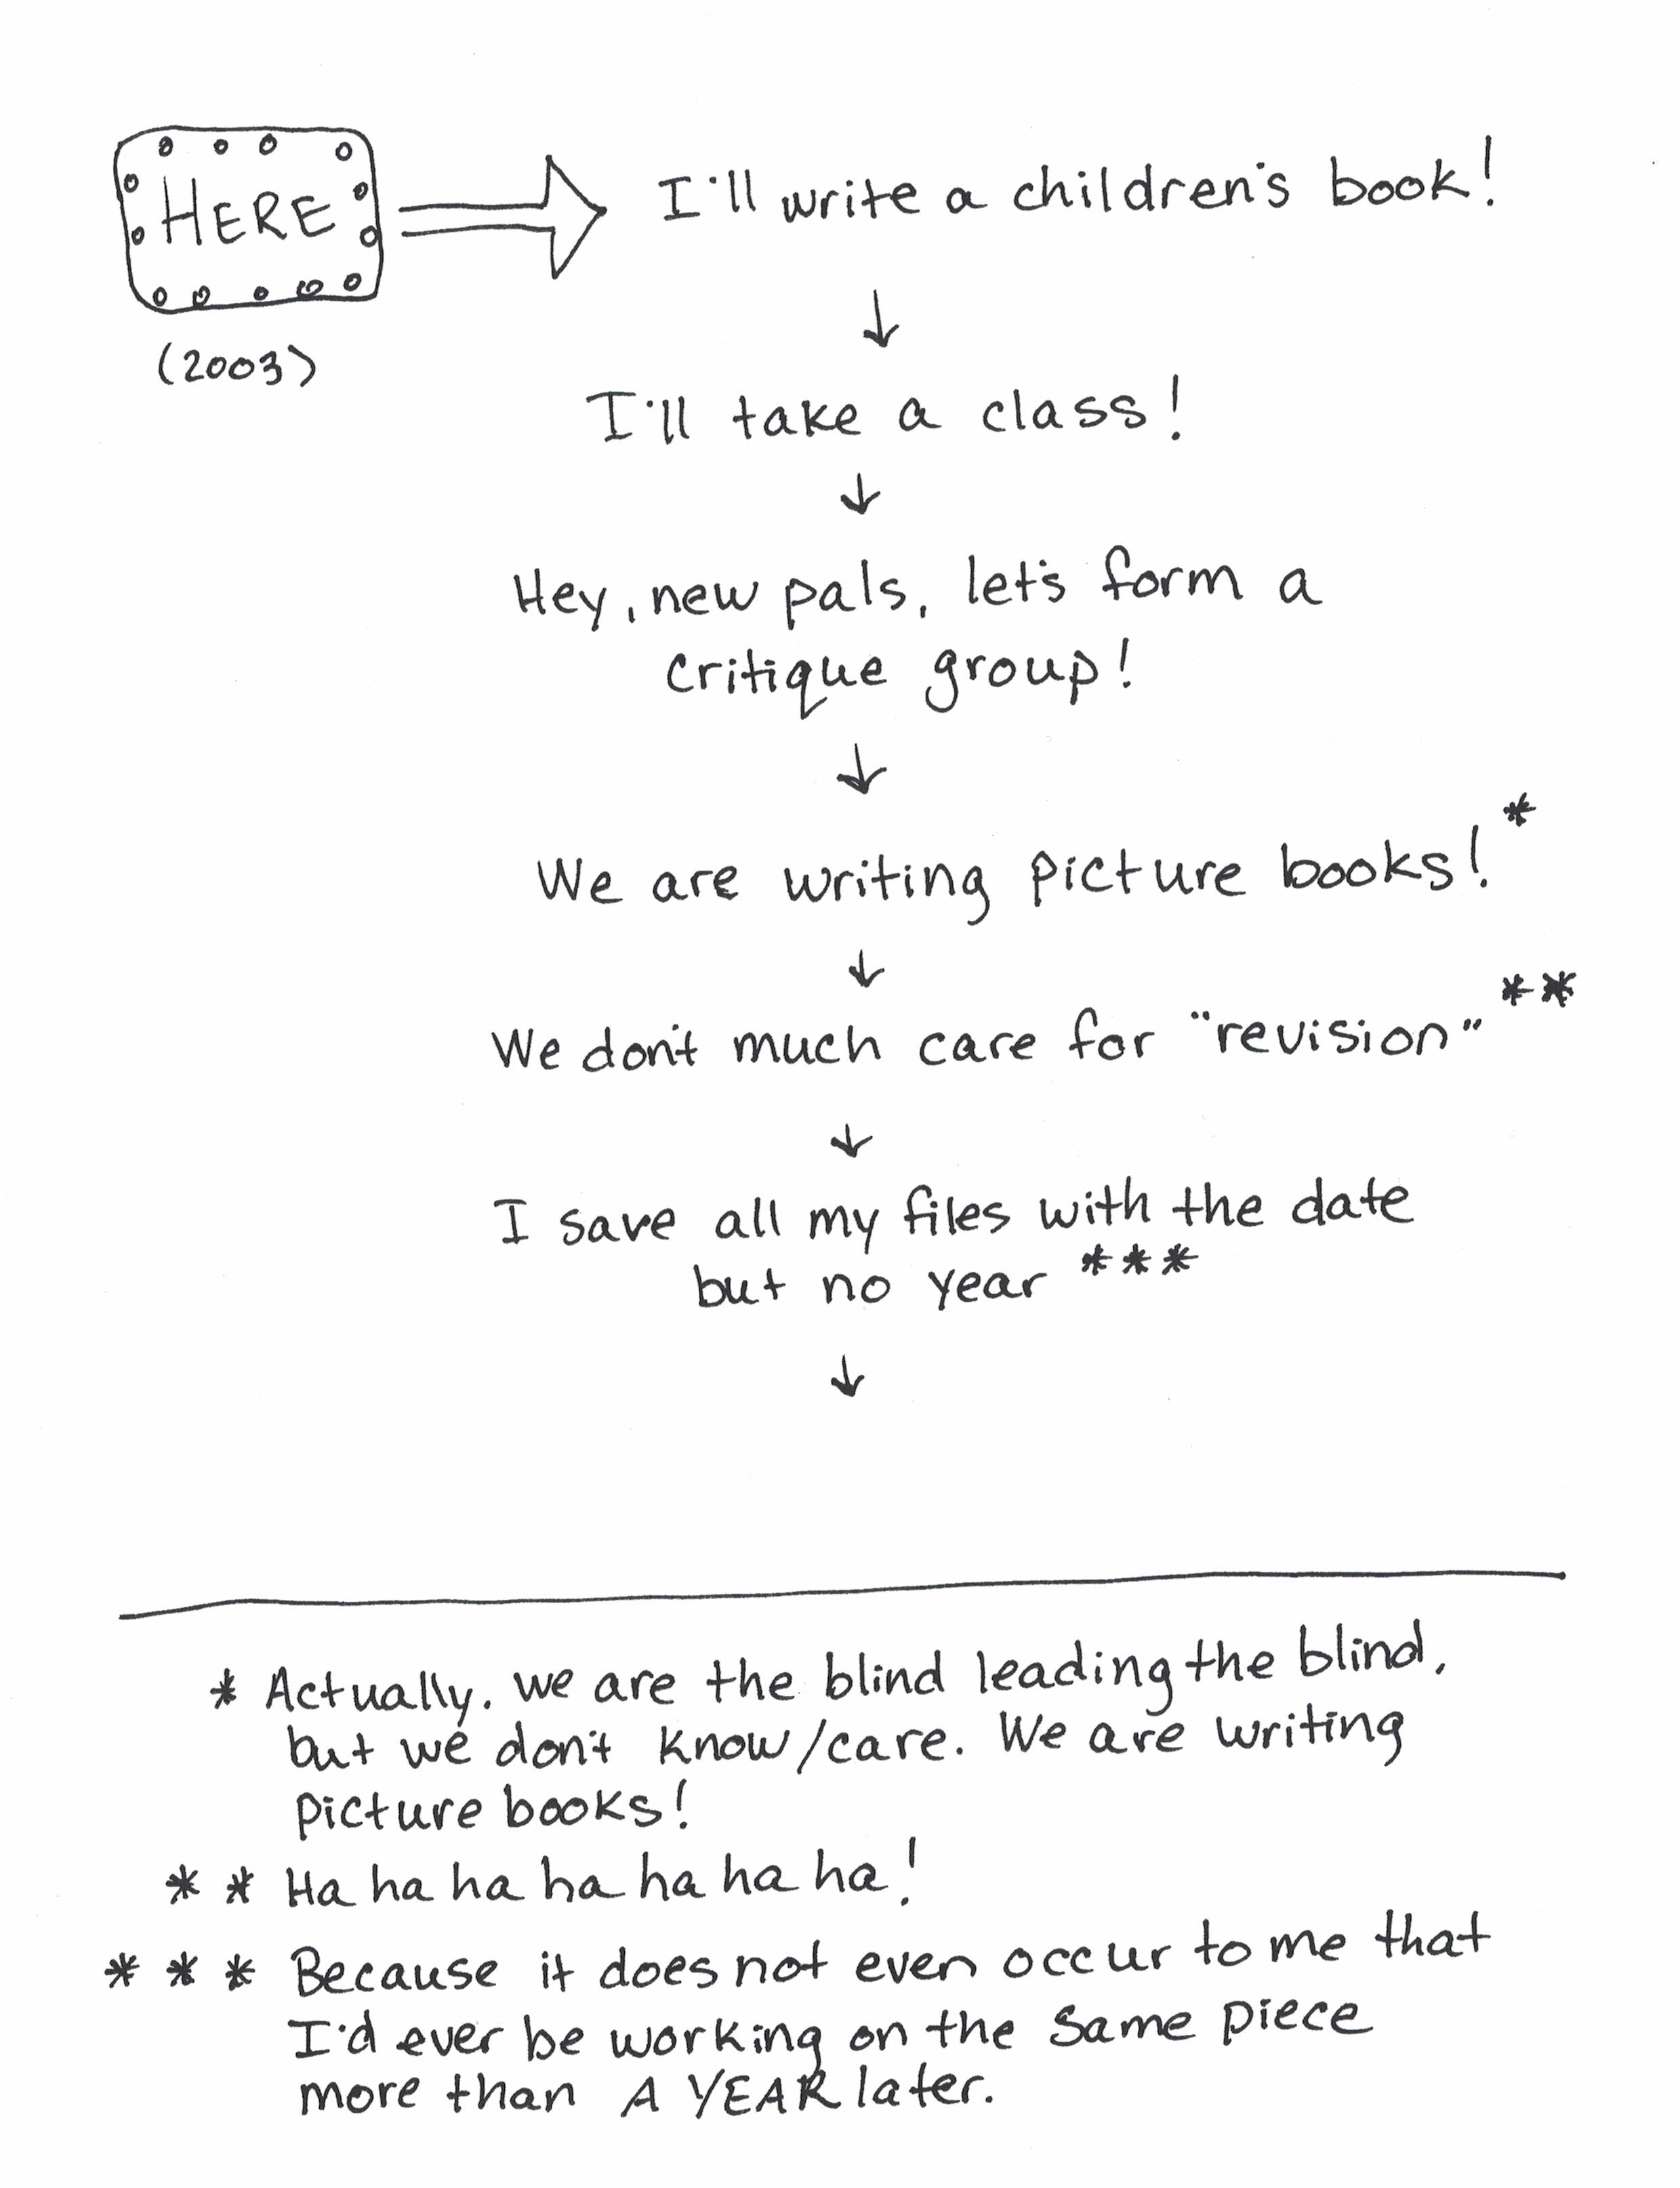 HERE
(2003)
I'll write a children's book!
I'll take a class!
Hey, new pals, let's form a
critique group!
We are writing picture books!*
We don't much care for "revision"**
I save all my files with the date
but no year ***
* Actually, we are the blind leading the blind,
but we don't know/care. We are writing
picture books!
** Ha ha ha ha ha ha ha!
*** Because it does not even occur to me that
I'd ever be working on the same piece
more than A YEAR later.